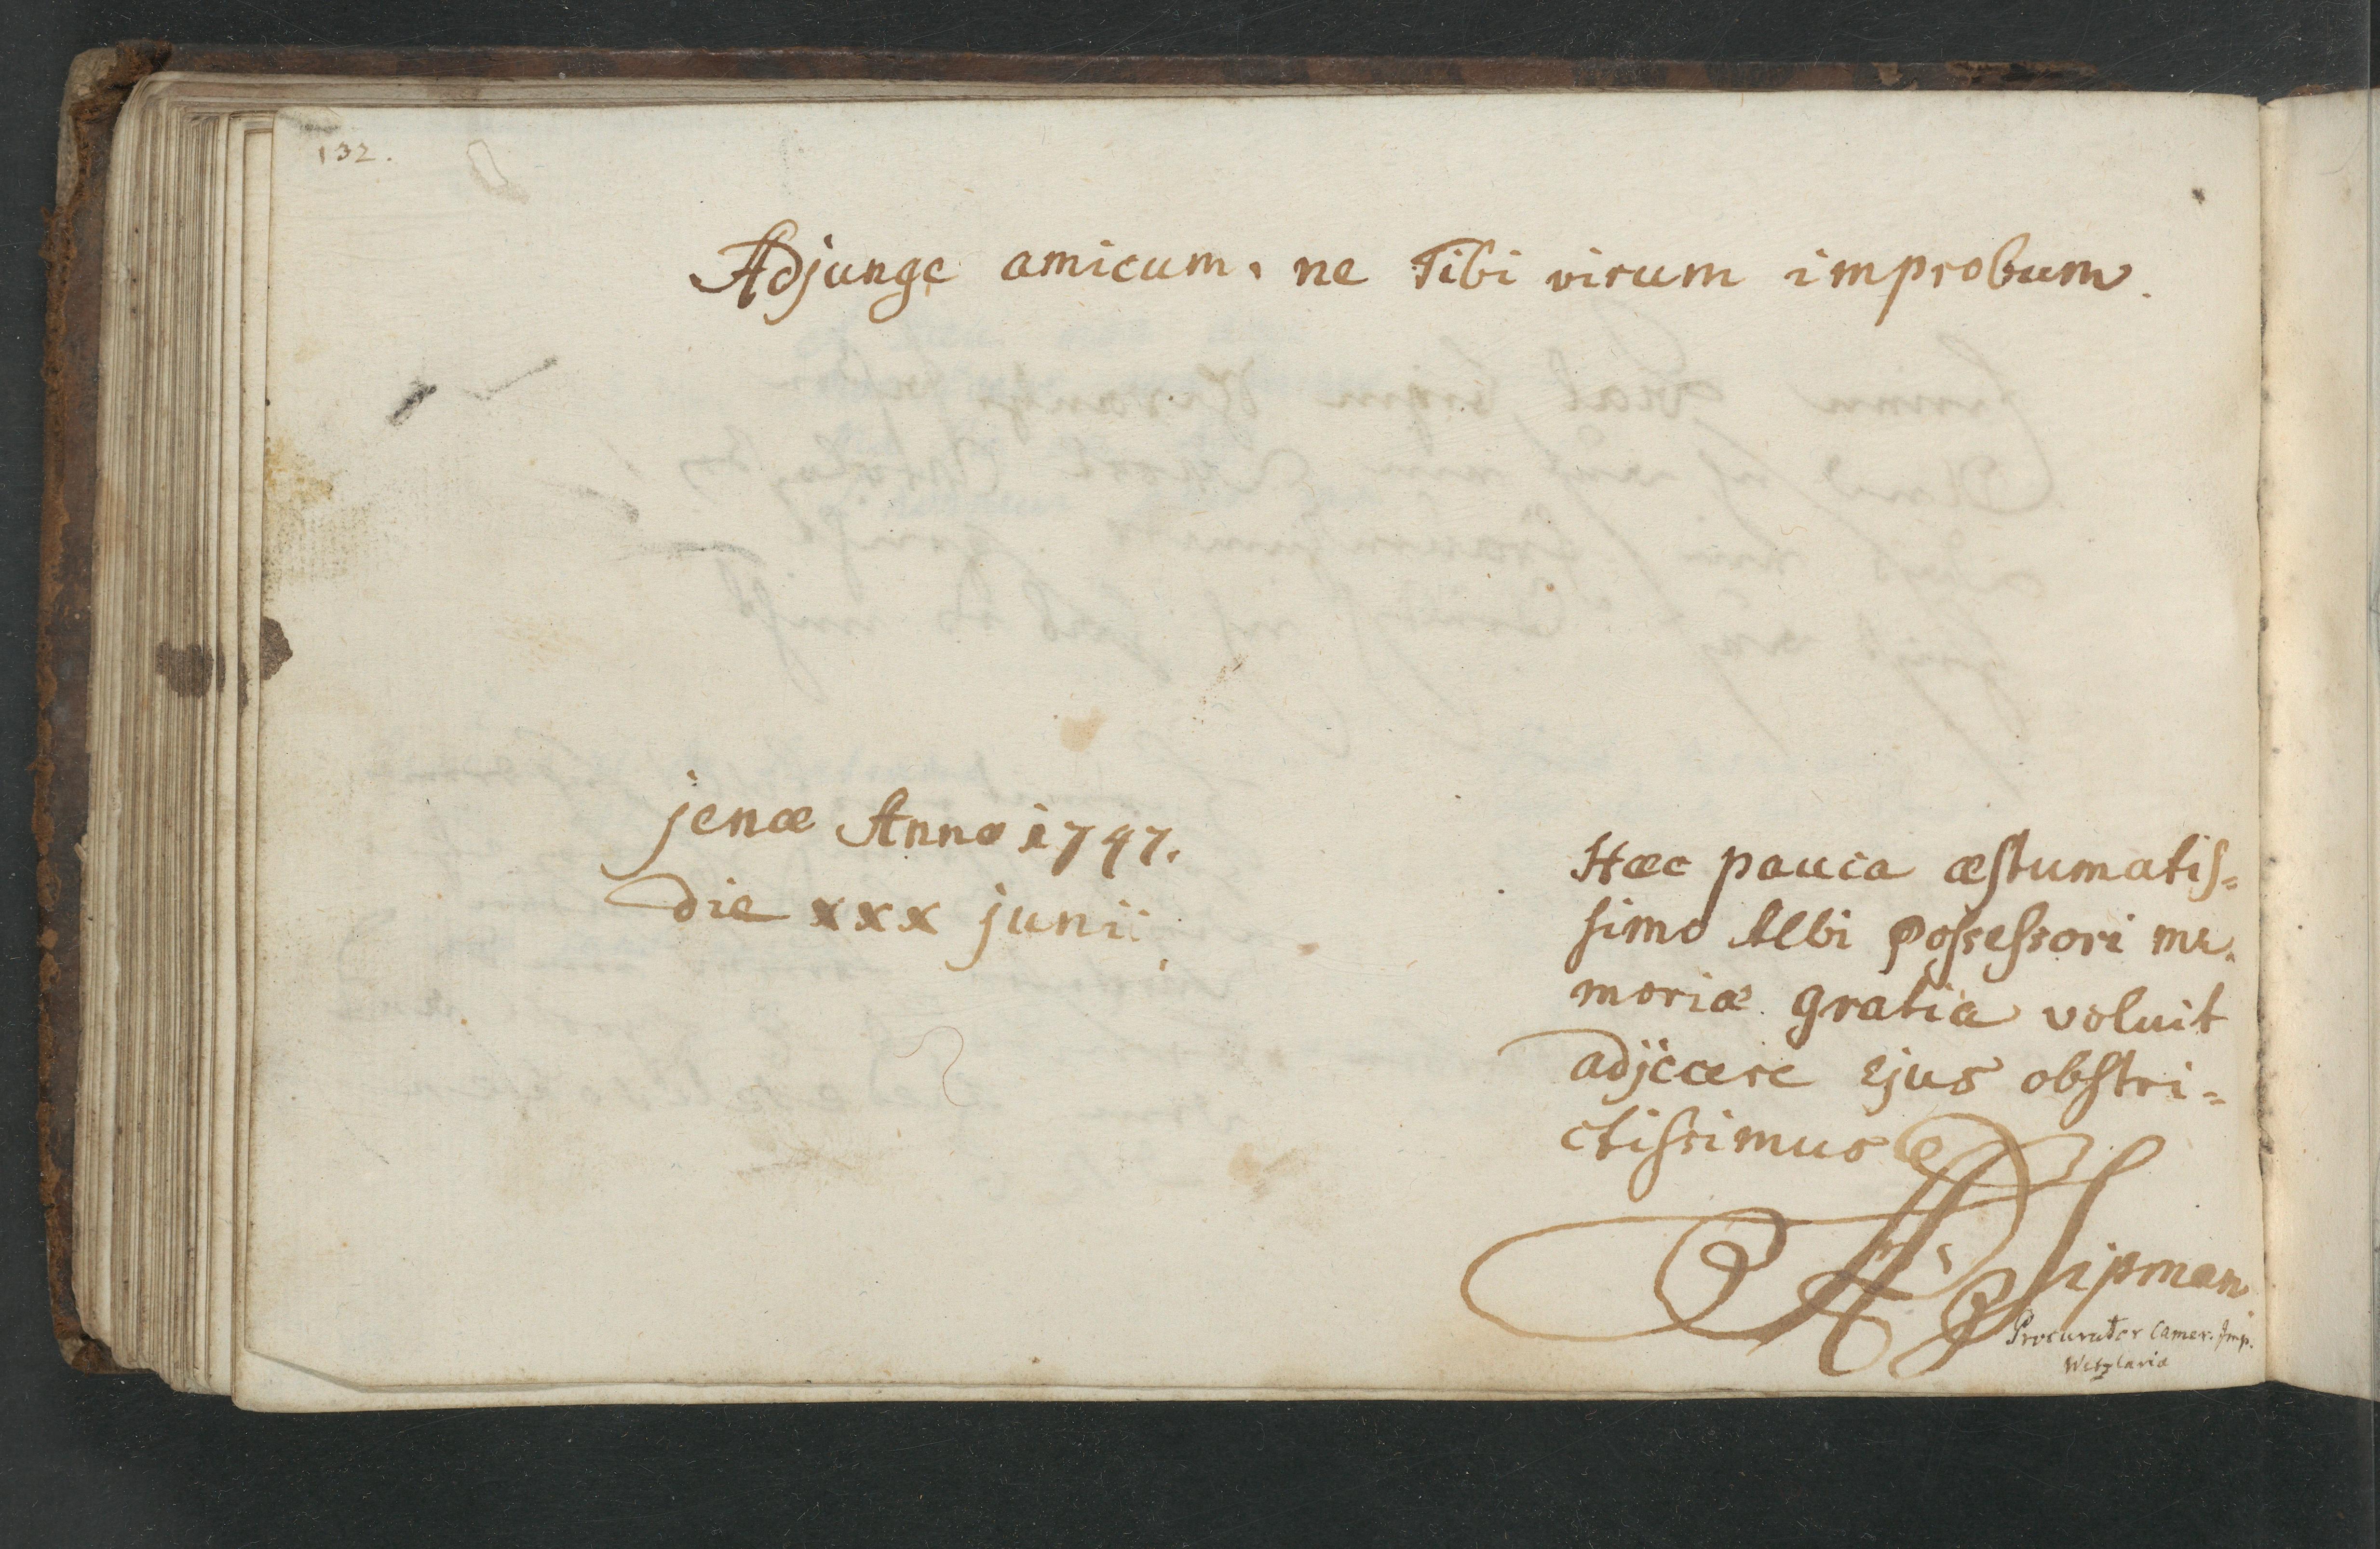 132.
Adjunge amicum, ne Tibi virum improbum.
jenæ Anno 1747.
die xxx junii
Hæc pauca æstumatis=
simo Albi Possessori me=
moriæ gratia voluit
adjicere ejus obstri=
ctissimus
Lipman
Procurator Camer. Imp.
Wetzlariæ